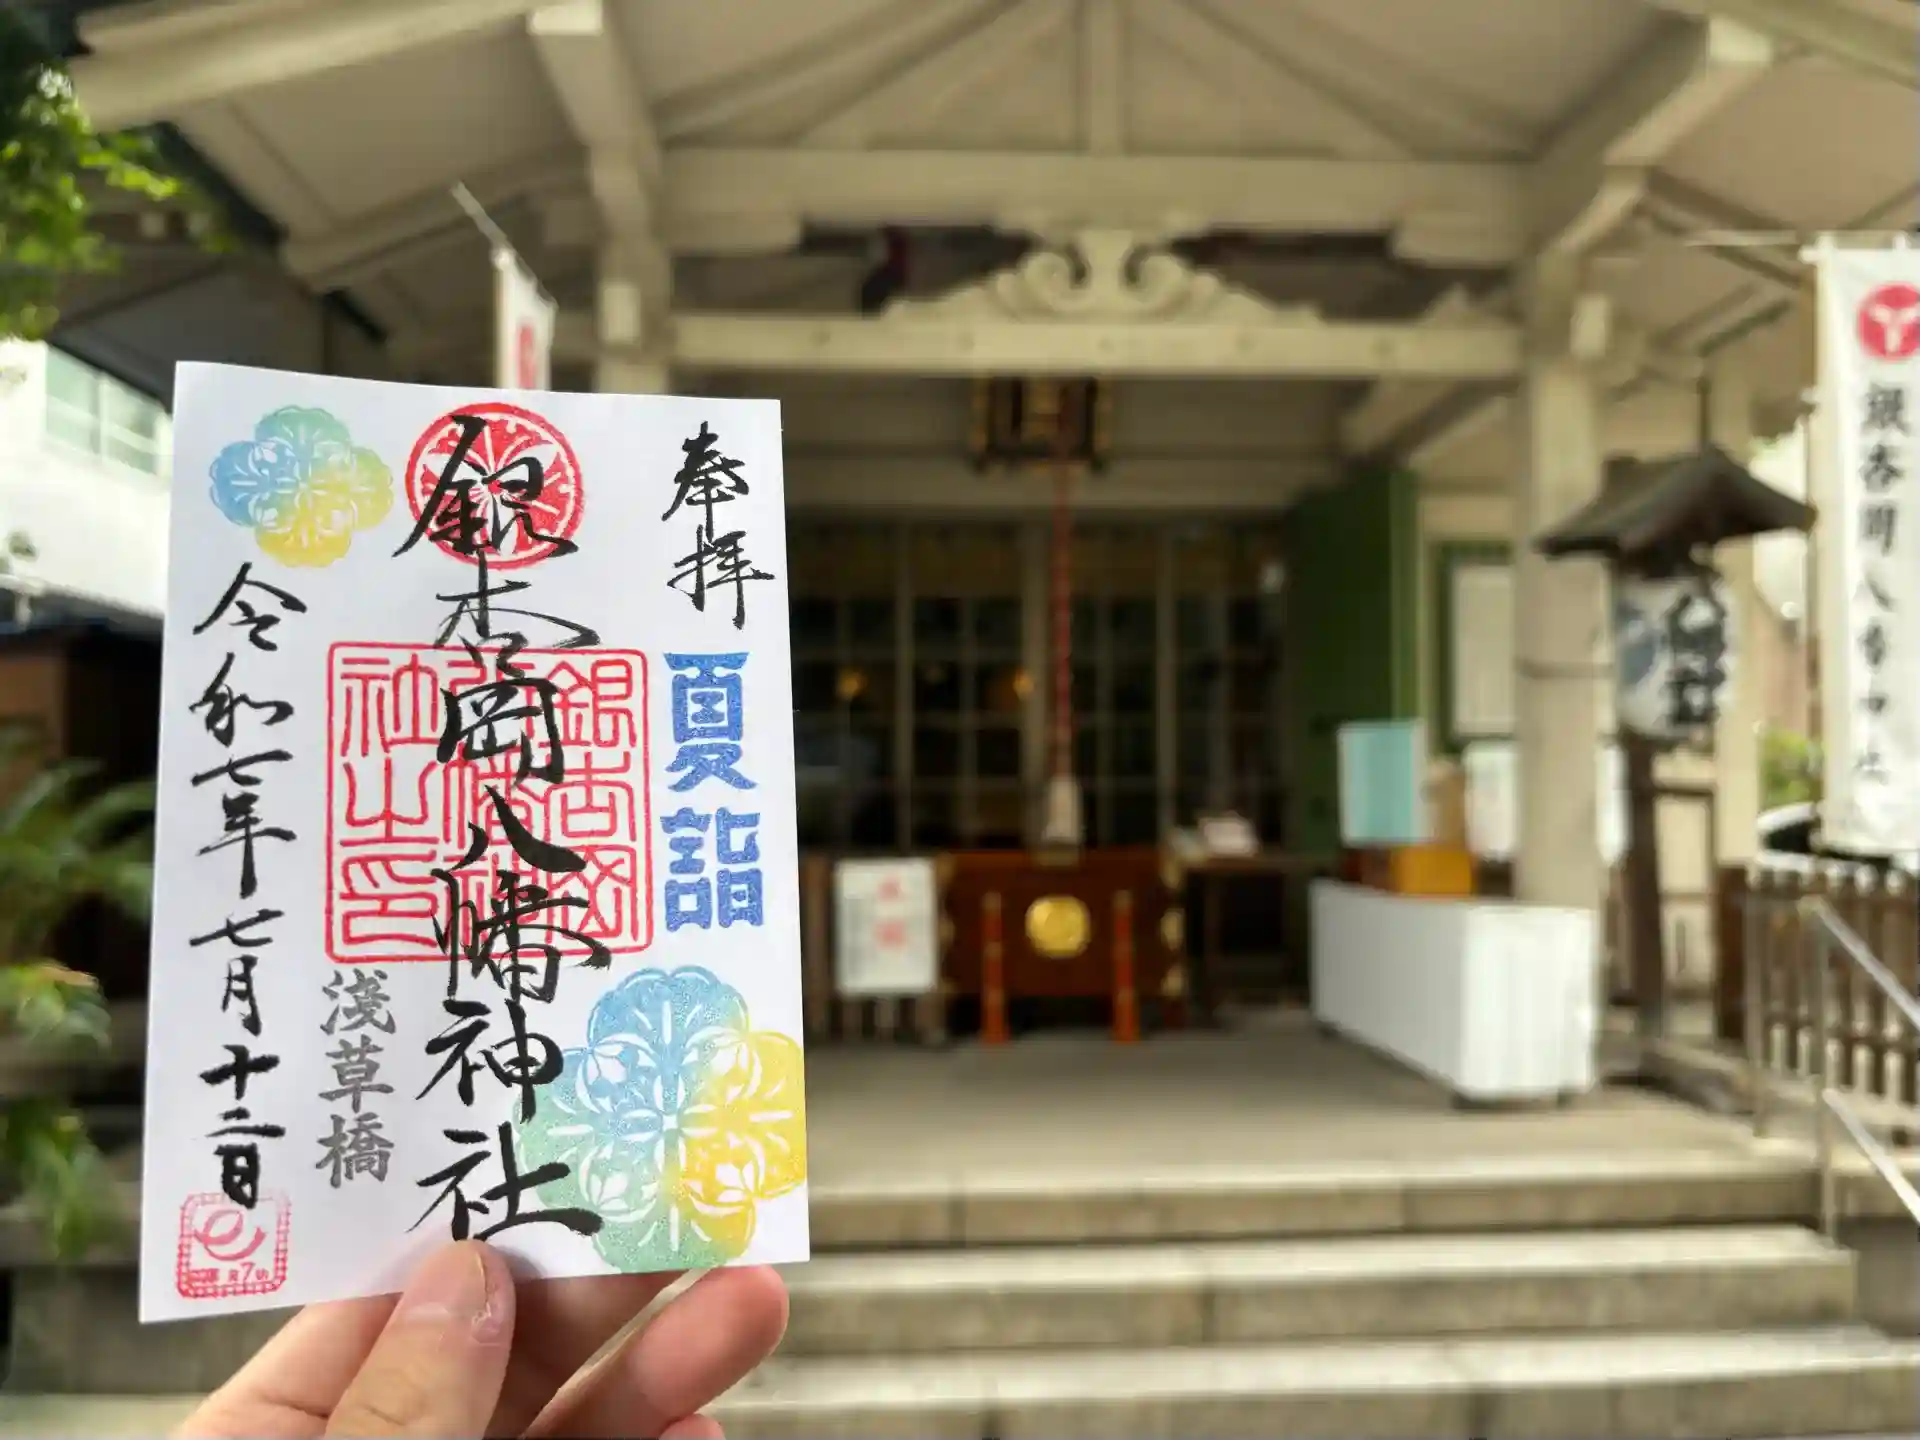 奉拝
夏詣
銀杏岡八幡神社
銀杏岡八幡神社之印
淺草橋
令和七年七月十二日
銀杏岡八幡神社